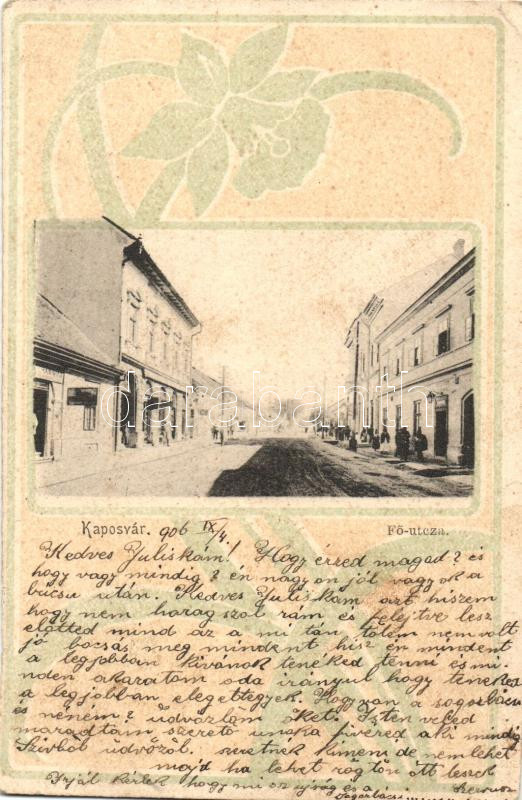 darabanth
Kaposvár. 906 IX/4.
Fő-utcza.
Kedves Juliskám! Hogy érzed magad? és
hogy vagy mindig? én nagyon jól vagyok a
bucsu után. Kedves Juliskám azt hiszem
hogy nem haragszol rám és felejtve lesz
előtted mind az a mi tán tőlem nem volt
jó bocsás meg mindent hisz én mindent
a legjobban kivánok teneked tenni és mi-
nden akaratom oda irányul hogy teneked
a legjobban elegettegyek. Hogyan a sogorbácsi
és néném? üdvözlöm őket. Isten veled
maradtam szerető unoka fivéred aki mindig
Szivből üdvözöl. szeretnék kimeni de nem lehet
majd ha lehet rögtön ott leszek
Irjál kérlek hogy mi az ujság és a Szervusz
Sogorbácsi